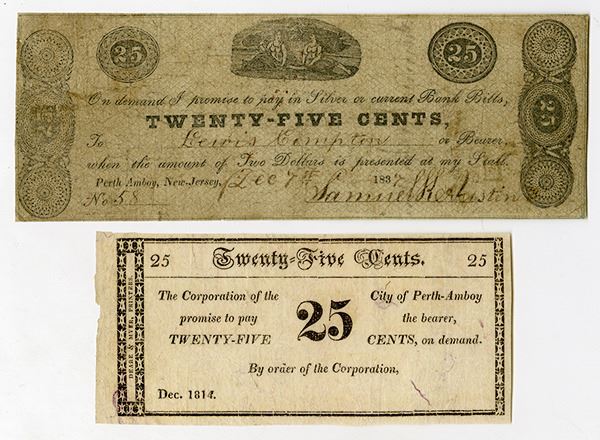 25
25
On demand I promise to pay in Silver or current Bank Bills,
TWENTY-FIVE CENTS,
To Lewis Compton or Bearer,
when the amount of Two Dollars is presented at my Stall.
Perth Amboy, New-Jersey, Dec 7th 1837
No 58 Samuel Austin
25
25 Twenty-Five Cents. 25
The Corporation of the City of Perth-Amboy
promise to pay 25 the bearer,
TWENTY-FIVE CENTS, on demand.
By order of the Corporation,
Dec. 1814.
DEARE & MYER, PRINTERS.